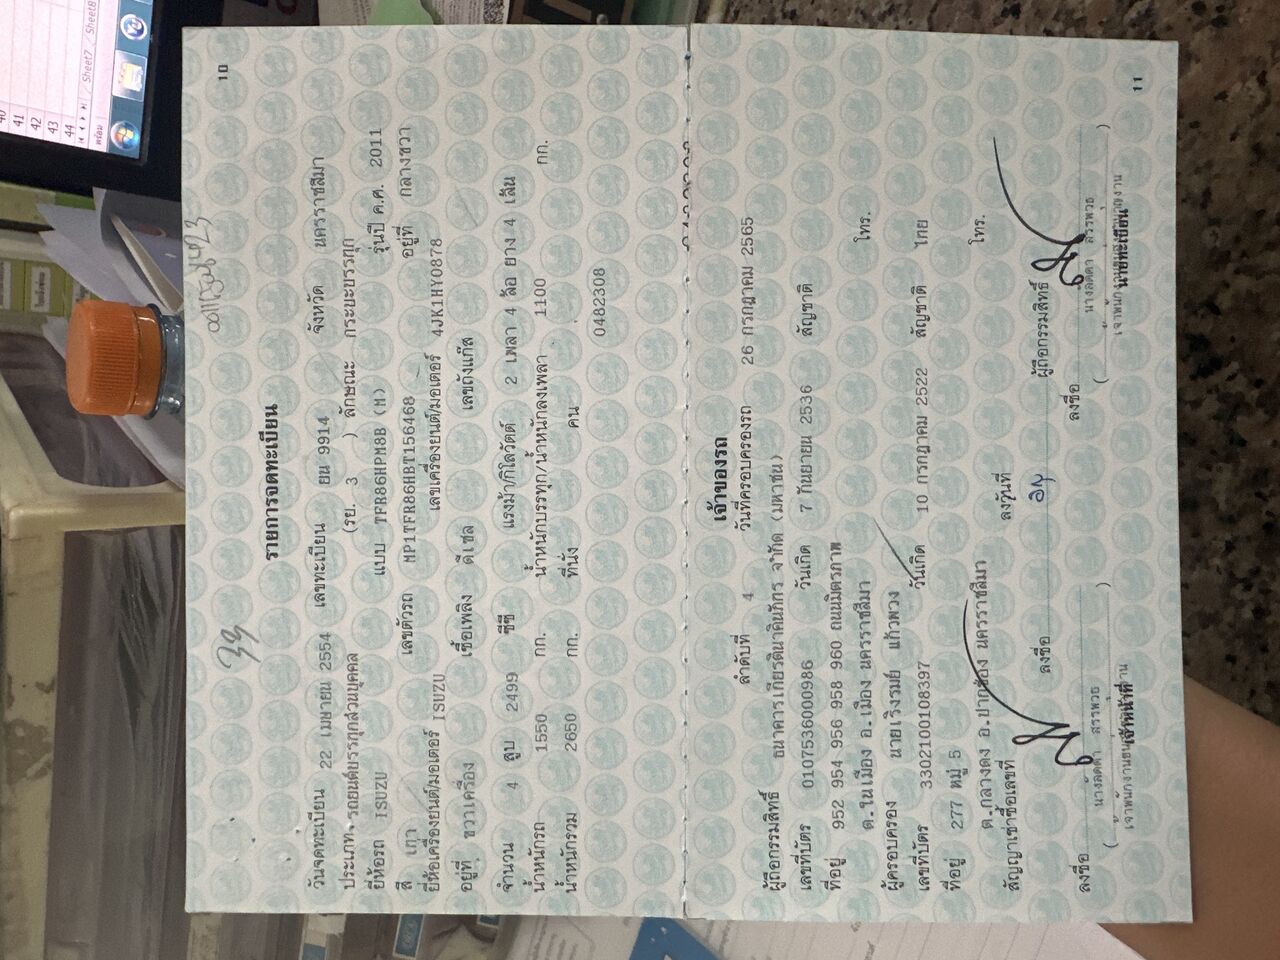 10
33
รายการจดทะเบียน
วันจดทะเบียน 22 เมษายน 2554 เลขทะเบียน ยน 9914 จังหวัด นครราชสีมา
ประเภท รถยนต์บรรทุกส่วนบุคคล (รย. 3 ) ลักษณะ กระบะบรรทุก
ยี่ห้อรถ ISUZU แบบ TFR86HPM8B (M) รุ่นปี ค.ศ. 2011
สี เทา เลขตัวรถ MP1TFR86HBT156468 อยู่ที่ กลางขวา
ยี่ห้อเครื่องยนต์/มอเตอร์ ISUZU เลขเครื่องยนต์/มอเตอร์ 4JK1HY0878
อยู่ที่ ขวาเครื่อง เชื้อเพลิง ดีเซล เลขถังแก๊ส
จำนวน 4 สูบ 2499 ซีซี แรงม้า/กิโลวัตต์ 2 เพลา 4 ล้อ ยาง 4 เส้น
น้ำหนักรถ 1550 กก. น้ำหนักบรรทุก/น้ำหนักลงเพลา 1100 กก.
น้ำหนักรวม 2650 กก. ที่นั่ง คน
0482308
เจ้าของรถ
ลำดับที่ 4 วันที่ครอบครองรถ 26 กรกฎาคม 2565
ผู้ถือกรรมสิทธิ์ ธนาคารเกียรตินาคินภัทร จำกัด (มหาชน)
เลขที่บัตร 0107536000986 วันเกิด 7 กันยายน 2536 สัญชาติ
ที่อยู่ 952 954 956 958 960 ถนนมิตรภาพ
ต.ในเมือง อ.เมือง นครราชสีมา โทร.
ผู้ครอบครอง นายเริงรมย์ แก้วพวง
เลขที่บัตร 3302100108397 วันเกิด 10 กรกฎาคม 2522 สัญชาติ ไทย
ที่อยู่ 277 หมู่ 5
ต.กลางดง อ.ปากช่อง นครราชสีมา โทร.
สัญญาเช่าซื้อเลขที่ ลงวันที่
ลงชื่อ ผู้ถือกรรมสิทธิ์
ลงชื่อ ลงชื่อ
( นางลัดดา สรรพวธ ) ( นางลัดดา สรรพวธ )
เจ้าหน้าที่ นายทะเบียน
11
40
41
42
43
44
Sheet7 Sheet8
พร้อม